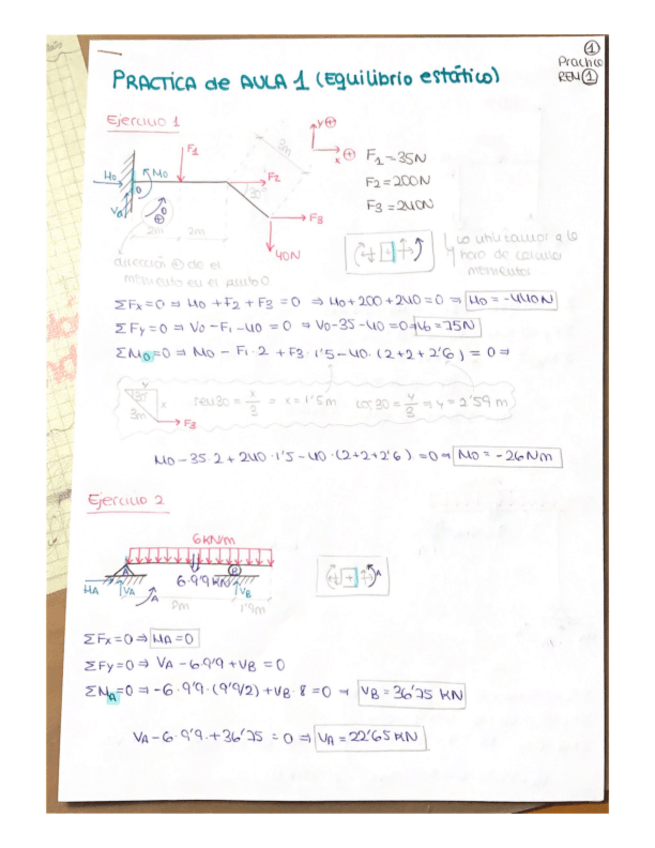 ①
Practica
REM ①
PRACTICA de AULA 1 (Equilibrio estático)
Ejercicio 1
F1
3m
y ⊕
x ⊕
F1=35N
F2=200N
F3=240N
Ho
Mo
O
F2
30°
Vo
O
⊕
F3
2m 2m
40N
dirección ⊕ de el
momento en el punto O
lo utilizamos a la
hora de calcular
momentos
ΣFx=0 ⇒ Ho + F2 + F3 = 0 ⇒ Ho+200+240=0 ⇒ Ho = -440N
ΣFy=0 ⇒ Vo - F1 - 40 = 0 ⇒ Vo-35-40=0 ⇒ Vo = 75N
ΣMo=0 ⇒ Mo - F1·2 + F3·1'5 - 40·(2+2+2'6) = 0 ⇒
y
30°
x
3m
F3
sen30 = x/3 ⇒ x = 1'5m cos30 = y/3 ⇒ y = 2'59 m
Mo-35·2+240·1'5-40·(2+2+2'6) =0 ⇒ Mo = -26Nm
Ejercicio 2
6KN/m
A
6·9'9 KN
B
HA
VA
A
VB
A
8m 1'9m
ΣFx=0 ⇒ HA=0
ΣFy=0 ⇒ VA - 6·9'9 + VB = 0
ΣMA=0 ⇒ -6·9'9·(9'9/2) + VB·8 = 0 ⇒ VB = 36'75 KN
VA - 6·9'9 + 36'75 = 0 ⇒ VA = 22'65 KN